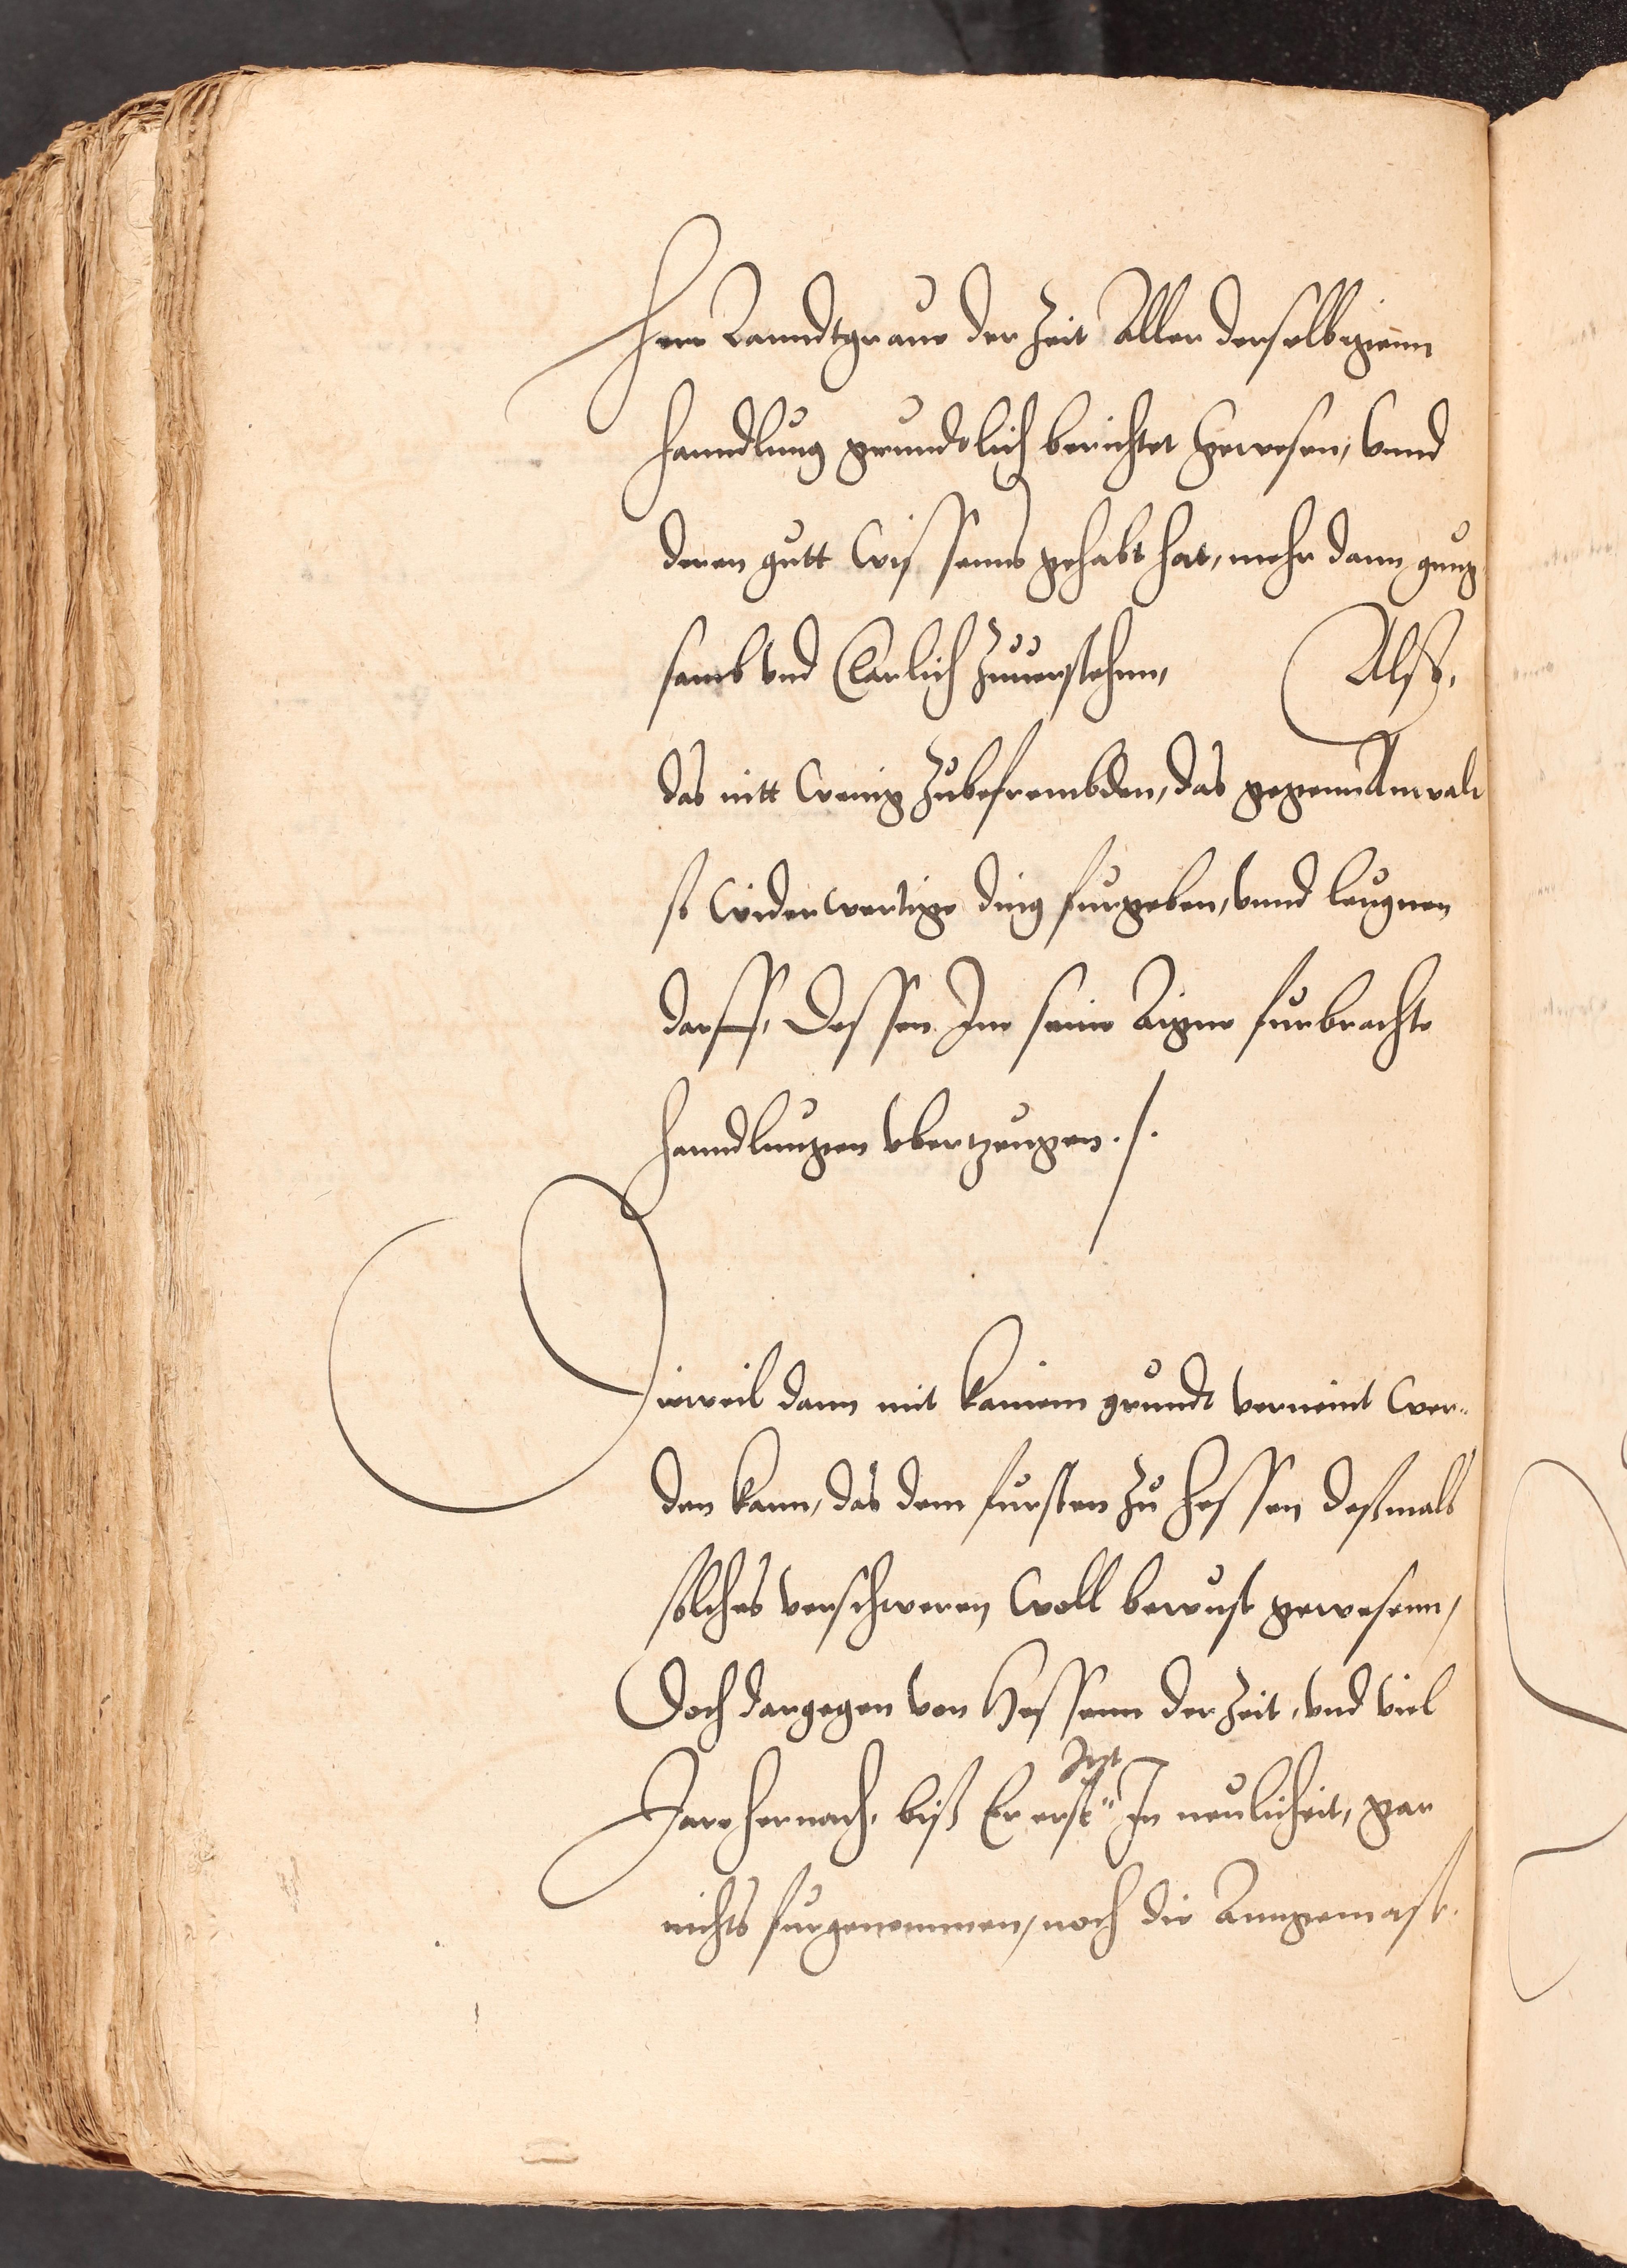 Herr Lanndtgraue der Zeit Aller derselbigenn
Hanndlung gruntlich berichtet gewesen, vnnd
deren gutt Wissenns gehabt hat, mehr dann gnug
samb vnd Clarlich zuuerstehnn, Also,
das nitt Wenig zubefrembden, das gegenn Anwalt
so widerwertige ding furgeben, vnnd leugnen
darff, Dessen Ine seine Aigne furbrachte
Hanndlungen vbertzeugen ./.
Dieweil dann mit kainem grundt verneint Wer-
den kann, das dem fursten zu Hessen deßmals
solches verschweren Woll bewust gewesenn,
Doch dargegen von Hessenn der Zeit, vnd viel
Jare hernach, biß Er erst Jtzt In neulicheit, gar
nichts furgenommen, noch die Anngemast